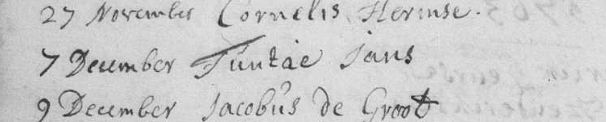 27 November Cornelis Hermse.
7 December Tuntae Jans
9 December Jacobus de Groot